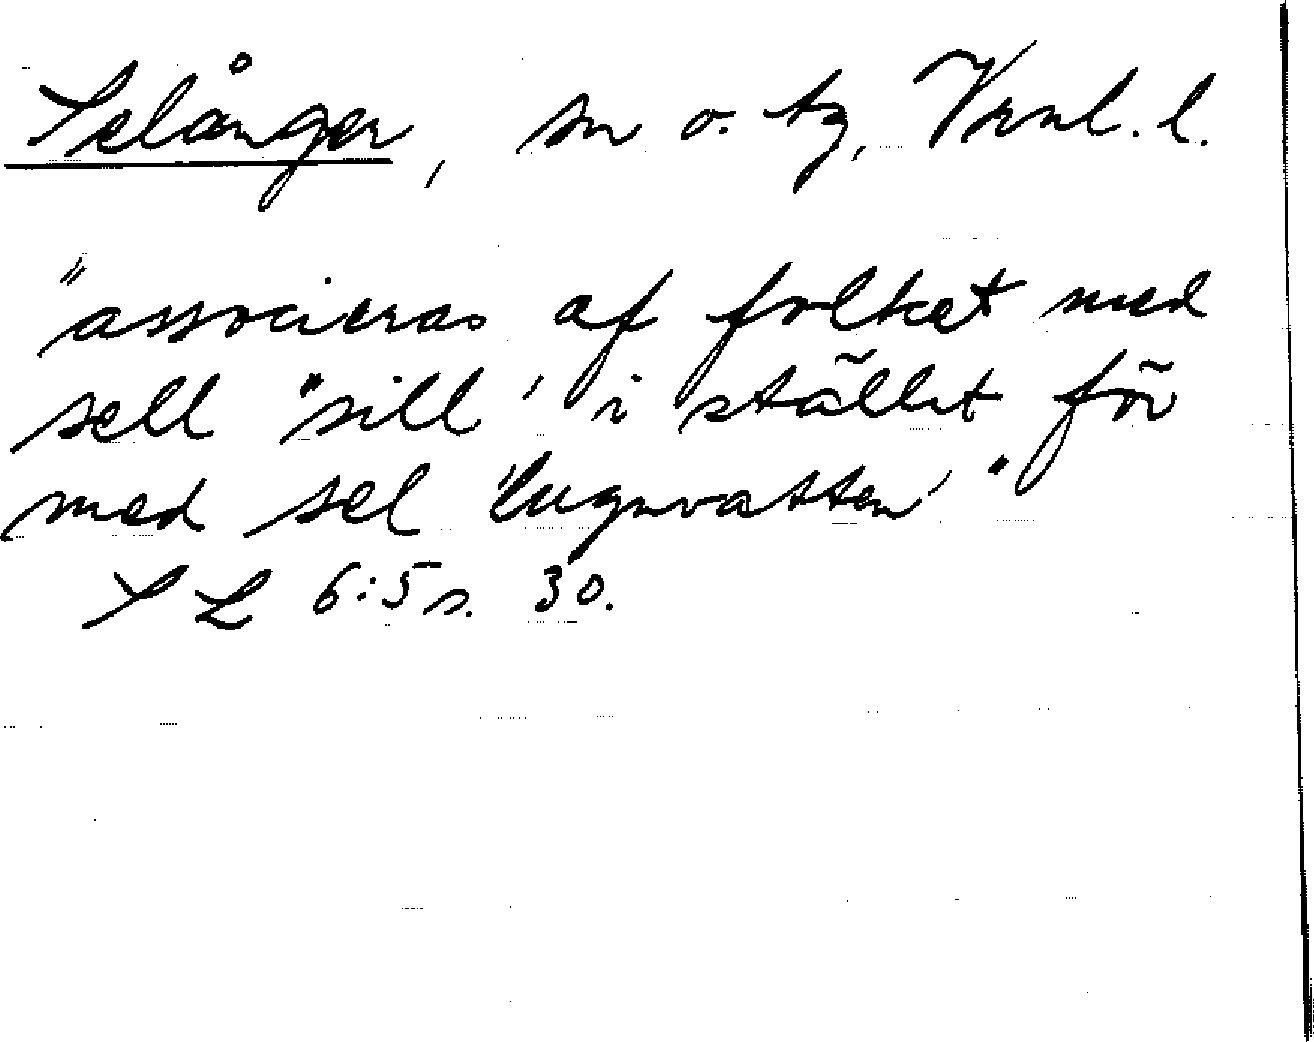 Selånger, sn o. tg, Vrnl. l.
"associeras af folket med
sell "sill' i stället för
med sel 'lugnvatten'"
SL 6:5 s. 30.